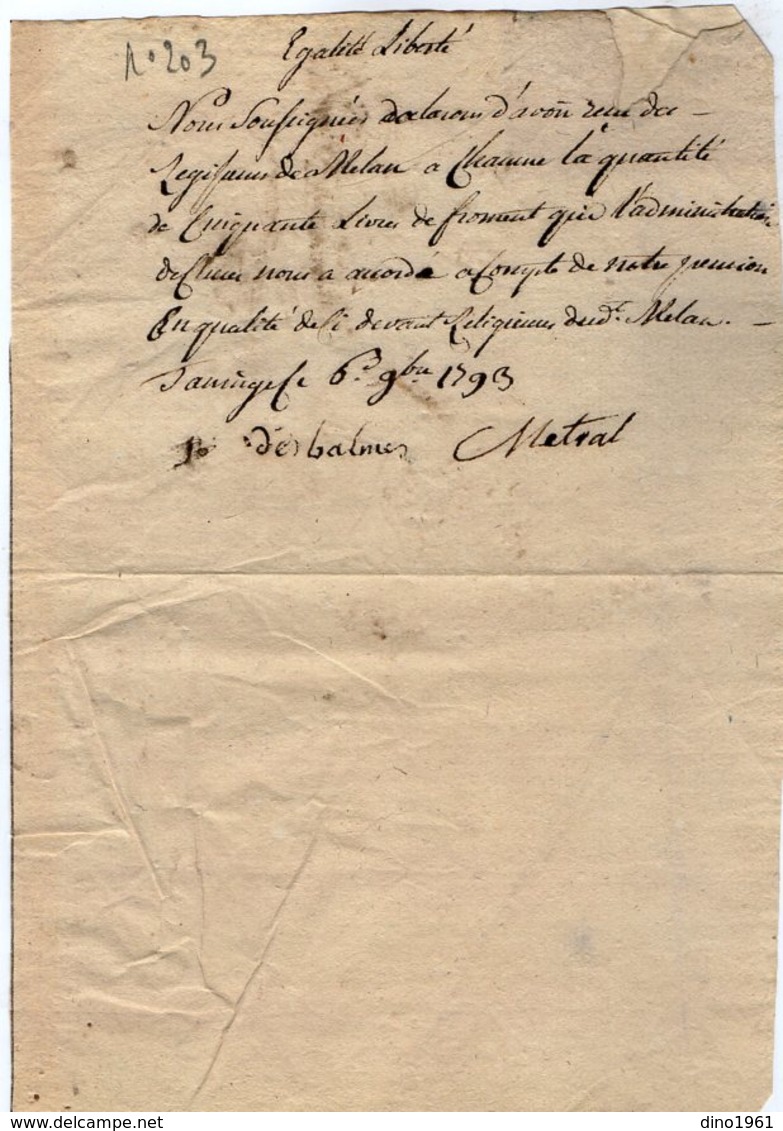 N° 203
Egalité Liberté
Nous Soussignées declarons d'avoir reçu des
Regisseurs de Melan a Chacune la quantité
de Cinquante Livres de froment que l'administration
de Cluses nous a accordé a Compte de notre pension
En qualité de Ci devant Religieuses dud.t Melan.
Taninge le 6.e 9bre 1793
desbalmes Metral
dino1961